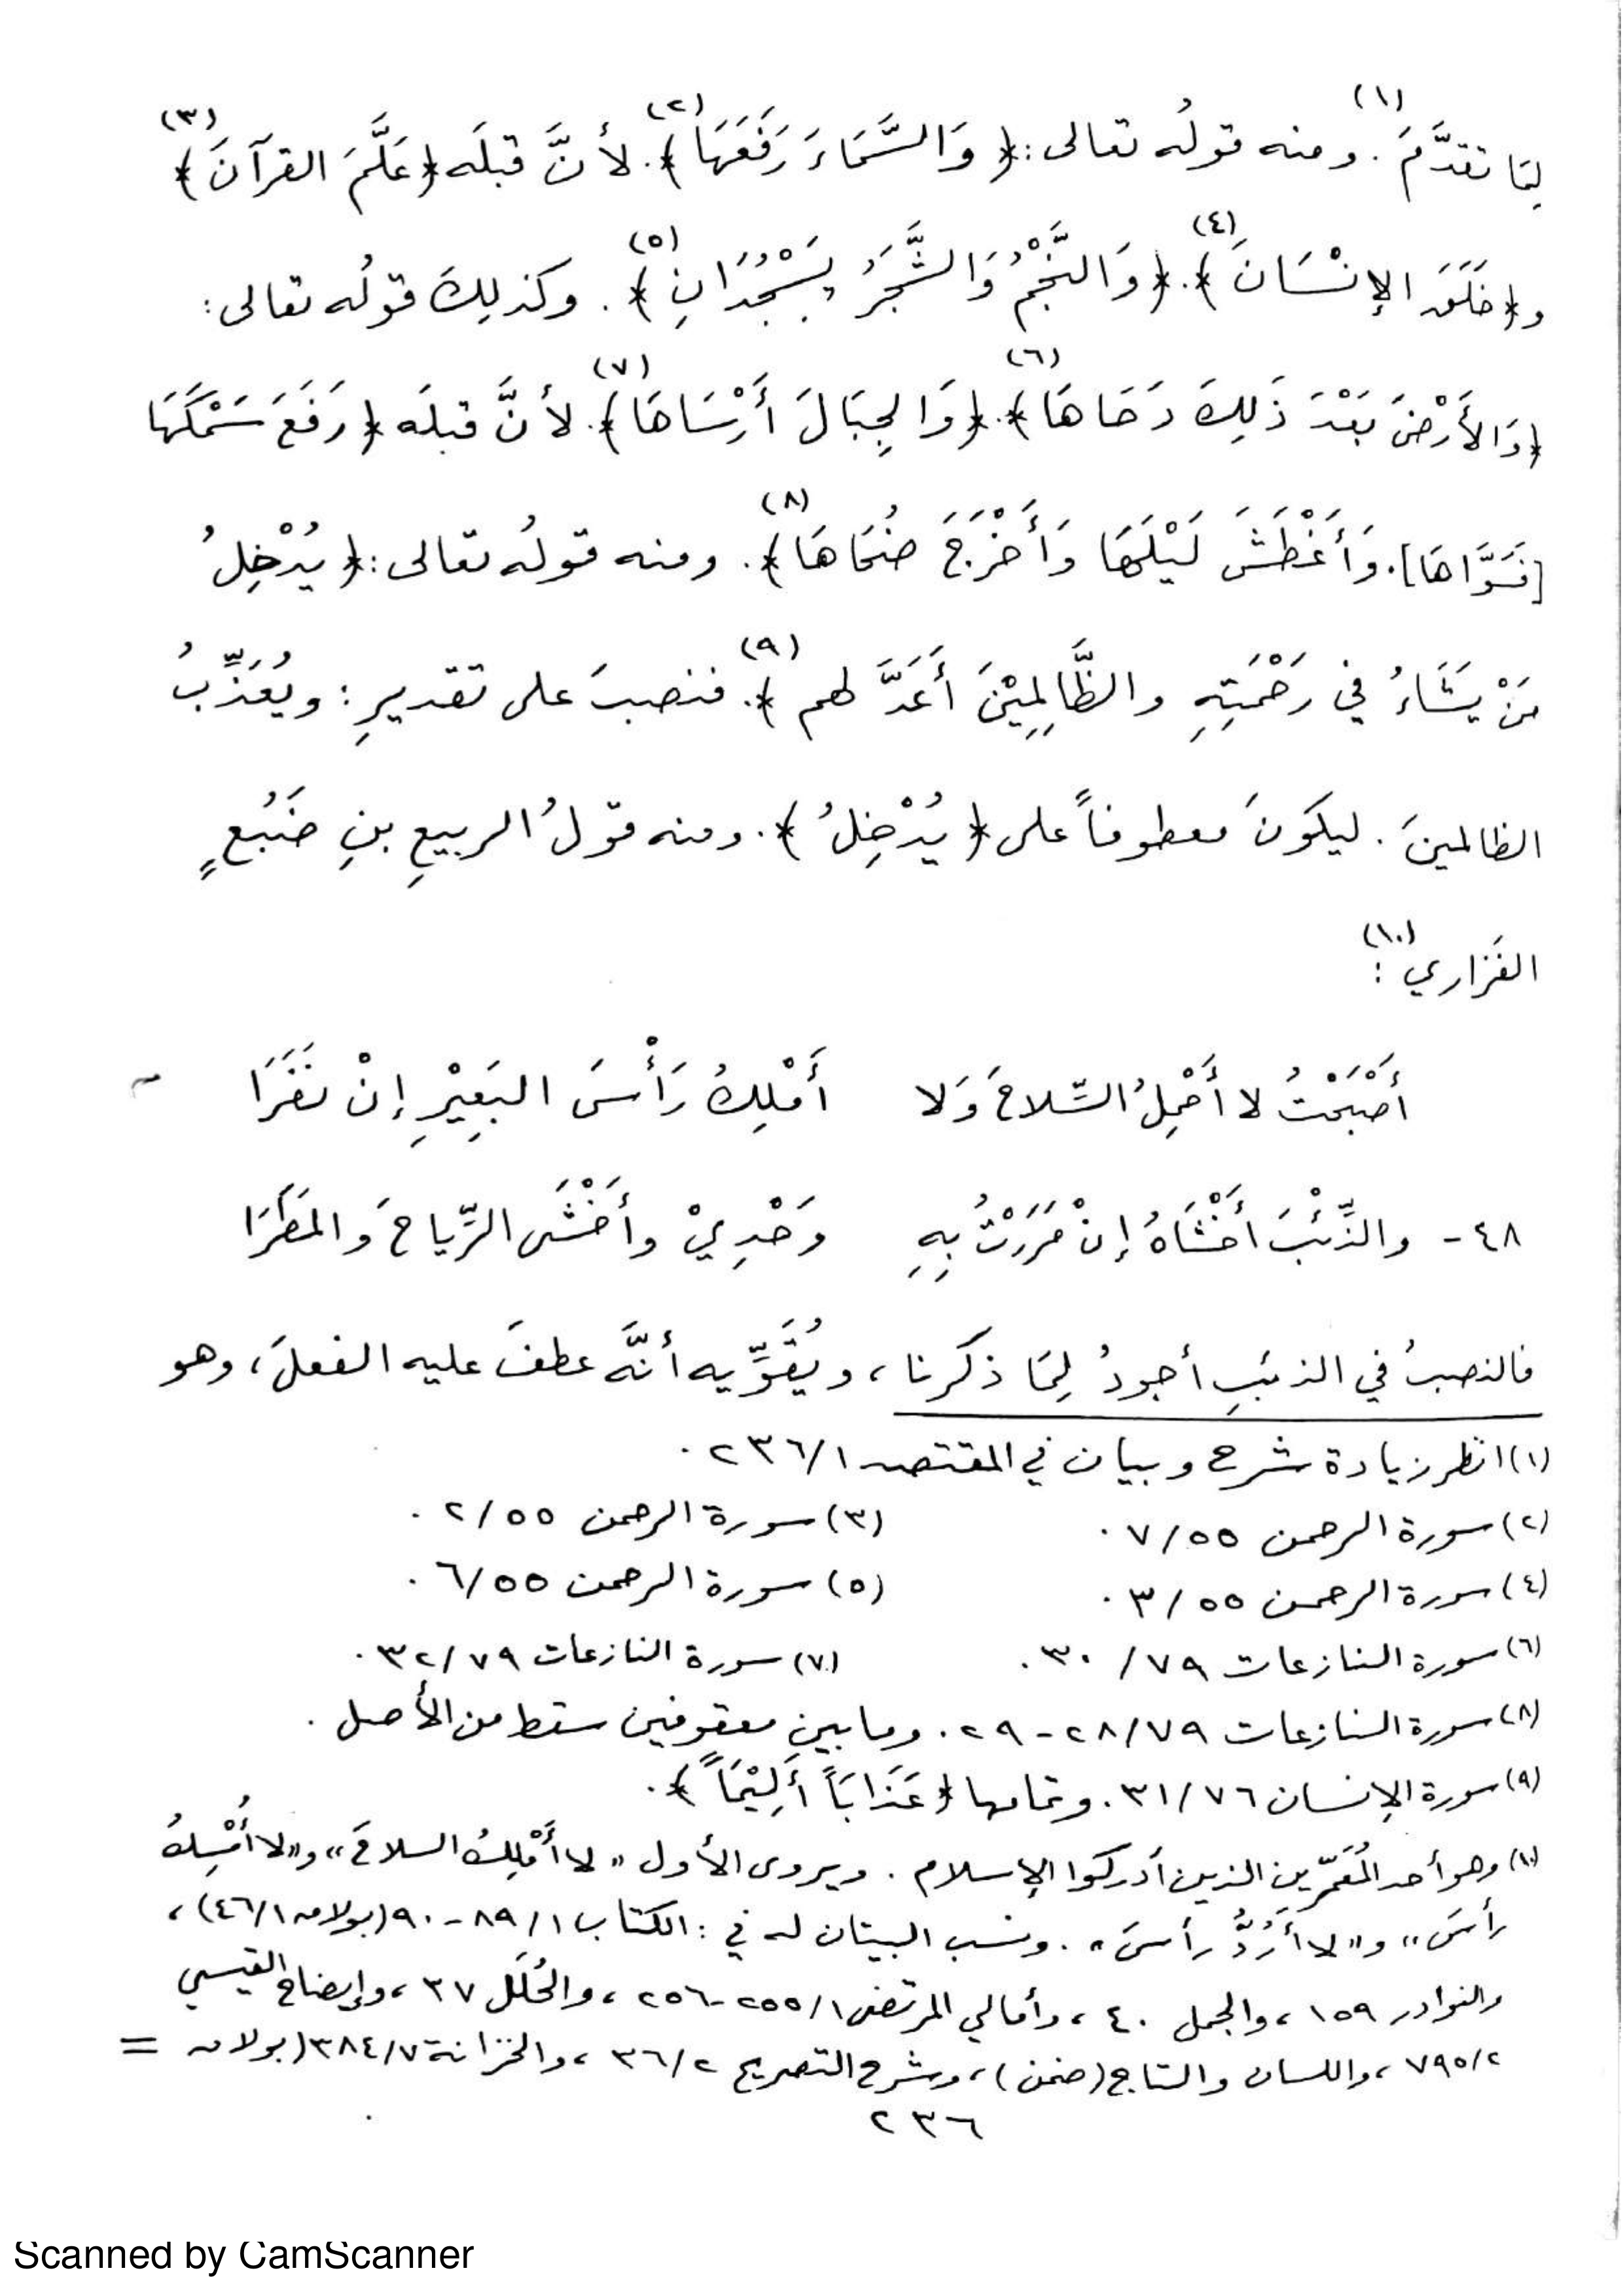 لِمَا تقدَّمَ(١). ومنه قولُه تعالى: ﴿وَالسَّمَاءَ رَفَعَهَا﴾(٢). لأنَّ قبلَه ﴿عَلَّمَ القرآنَ﴾(٣)
و﴿خَلَقَ الإِنْسَانَ﴾(٤). ﴿وَالنَّجْمُ وَالشَّجَرُ يَسْجُدَانِ﴾(٥). وكذلِكَ قولُه تعالى:
﴿وَالأَرْضَ بَعْدَ ذَلِكَ دَحَاهَا﴾(٦). ﴿وَالجِبَالَ أَرْسَاهَا﴾(٧). لأنَّ قبلَه ﴿رَفَعَ سَمْكَهَا
[فَسَوَّاهَا]. وَأَغْطَشَ لَيْلَهَا وَأَخْرَجَ ضُحَاهَا﴾(٨). ومنه قولُه تعالى: ﴿يُدْخِلُ
مَنْ يَشَاءُ في رَحْمَتِهِ والظَّالِمِيْنَ أَعَدَّ لهم﴾(٩). فنصبَ على تقديرِ: ويُعَذِّبُ
الظالمينَ. ليكونَ معطوفاً على ﴿يُدْخِلُ﴾. ومنه قولُ الربيعِ بنِ ضَبُعٍ
الفَزاري(١٠):
أَصْبَحْتُ لا أَحْمِلُ السّلاحَ وَلا أَمْلِكُ رَأْسَ البَعِيْرِ إِنْ نَفَرَا
٤٨- والذِّئْبَ أَخْشَاهُ إِنْ مَرَرْتُ بِهِ وَحْدِيْ وأَخْشَى الرِّياحَ والمَطَرَا
فالنصبُ في الذئبِ أجودُ لِمَا ذكرنا، ويُقَوِّيه أنَّه عطفَ عليه الفعلَ، وهو
(١) انظر زيادة شرح وبيان في المقتصد ٢٣٦/١.
(٢) سورة الرحمن ٧/٥٥. (٣) سورة الرحمن ٢/٥٥.
(٤) سورة الرحمن ٣/٥٥. (٥) سورة الرحمن ٦/٥٥.
(٦) سورة النازعات ٣٠/٧٩. (٧) سورة النازعات ٣٢/٧٩.
(٨) سورة النازعات ٢٨/٧٩-٢٩. وما بين معقوفين سقط من الأصل.
(٩) سورة الإنسان ٣١/٧٦. وتمامها ﴿عَذَابَاً أَلِيْمَاً﴾.
(١٠) وهو أحد المُعَمَّرين الذين أدركوا الإسلام. ويروى الأول «لا أَمْلِكُ السلاحَ» و«لا أُمْسِكُ
رأسَ» و«لا أَرُدُّ رأسَ». ونسب البيتان له في: الكتاب ٨٩/١-٩٠ (بولاق ٤٦/١)،
والنوادر ١٥٩، والجمل ٤٠، وأمالي المرتضى ٢٥٥/١-٢٥٦، والحُلَل ٣٧، وإيضاح القيسي
٧٩٥/٢، واللسان والتاج (ضمن)، وشرح التصريح ٣٦/٢، والخزانة ٣٨٤/٧ (بولاق =
٢٣٦
Scanned by CamScanner